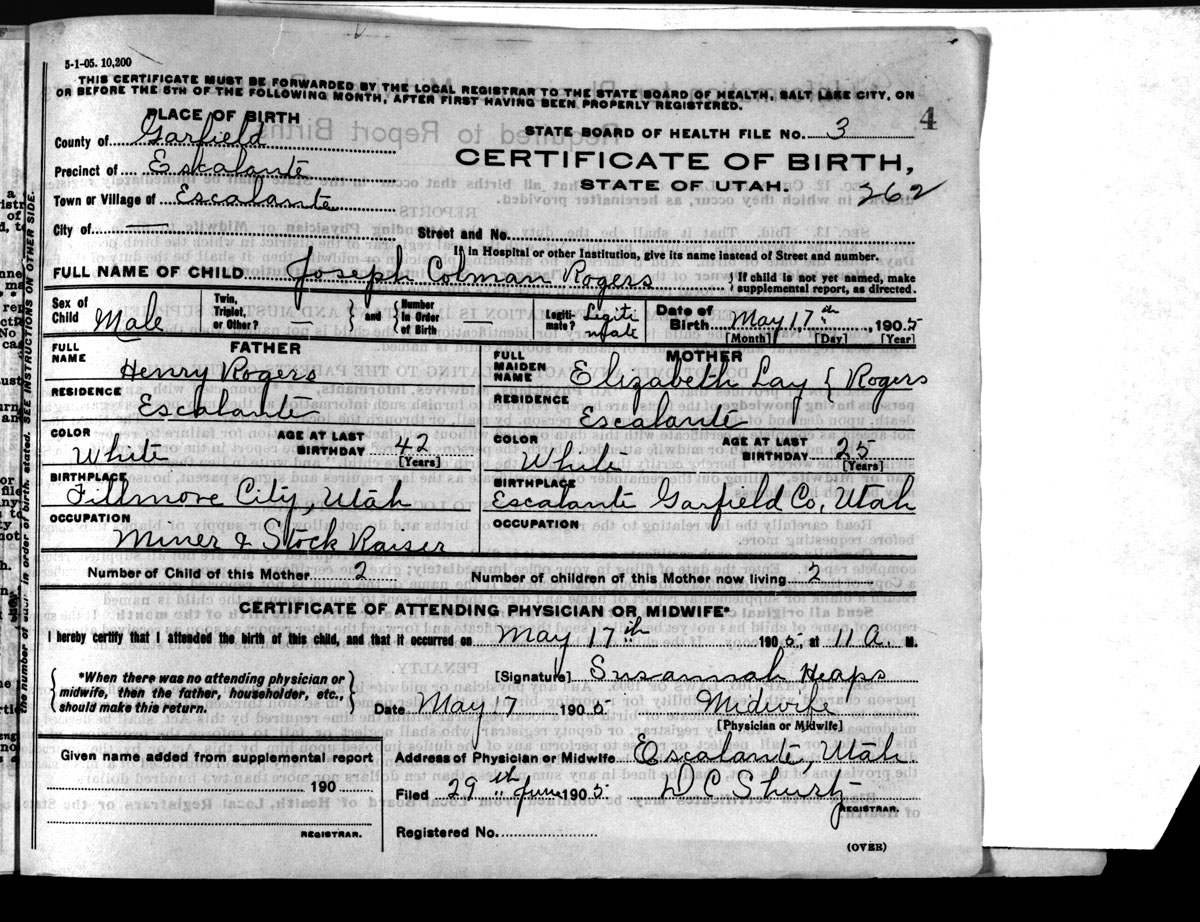 5-1-05. 10,200
THIS CERTIFICATE MUST BE FORWARDED BY THE LOCAL REGISTRAR TO THE STATE BOARD OF HEALTH, SALT LAKE CITY, ON
OR BEFORE THE 5TH OF THE FOLLOWING MONTH, AFTER FIRST HAVING BEEN PROPERLY REGISTERED.
4
PLACE OF BIRTH
STATE BOARD OF HEALTH FILE No. 3
County of Garfield
CERTIFICATE OF BIRTH,
Precinct of Escalante
STATE OF UTAH.
262
Town or Village of Escalante
City of —
Street and No.
If in Hospital or other Institution, give its name instead of Street and number.
FULL NAME OF CHILD Joseph Colman Rogers
If child is not yet named, make
supplemental report, as directed.
Sex of
Child Male
Twin,
Triplet,
or Other? —
and
Number
in Order
of Birth
Legiti-
mate? Legiti
mate
Date of
Birth May 17th, 1905
[Month] [Day] [Year]
FATHER
FULL
NAME Henry Rogers
RESIDENCE
Escalante
COLOR
White
AGE AT LAST
BIRTHDAY 42
[Years]
BIRTHPLACE
Fillmore City, Utah
OCCUPATION
Miner & Stock Raiser
MOTHER
FULL
MAIDEN
NAME Elizabeth Lay { Rogers
RESIDENCE
Escalante
COLOR
White
AGE AT LAST
BIRTHDAY 25
[Years]
BIRTHPLACE
Escalante Garfield Co, Utah
OCCUPATION
Number of Child of this Mother 2
Number of children of this Mother now living 2
CERTIFICATE OF ATTENDING PHYSICIAN OR MIDWIFE*
I hereby certify that I attended the birth of this child, and that it occurred on May 17th 1905, at 11 A. M.
*When there was no attending physician or
midwife, then the father, householder, etc.,
should make this return.
[Signature] Susannah Heaps
Date May 17 1905
Midwife
[Physician or Midwife]
Given name added from supplemental report
190
REGISTRAR.
Address of Physician or Midwife Escalante, Utah.
Filed 29th June 1905 D C Shurtz
REGISTRAR.
Registered No.
(OVER)
in order of birth. stated. SEE INSTRUCTIONS ON OTHER SIDE.